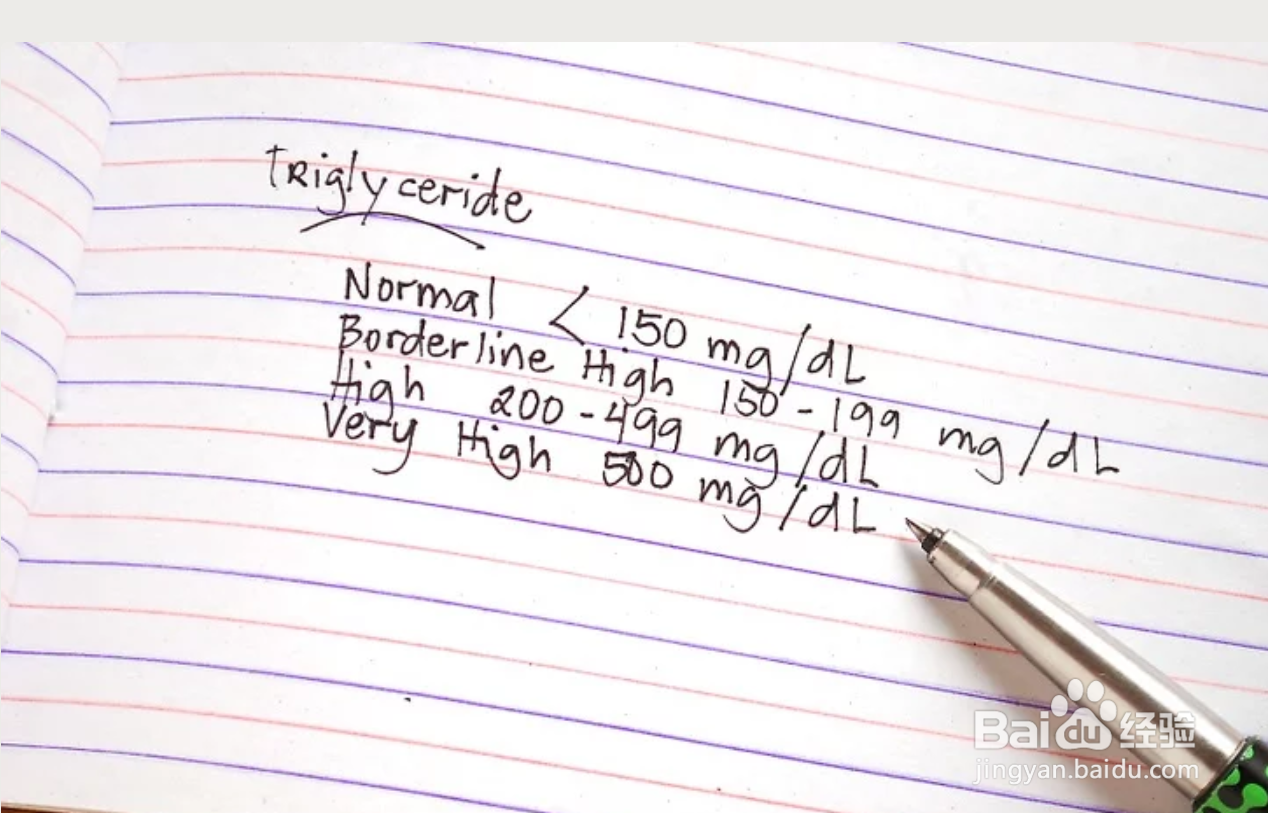 TRiglyceride
Normal < 150 mg/dL
Borderline High 150-199 mg/dL
High 200-499 mg/dL
Very High 500 mg/dL
Baidu经验
jingyan.baidu.com